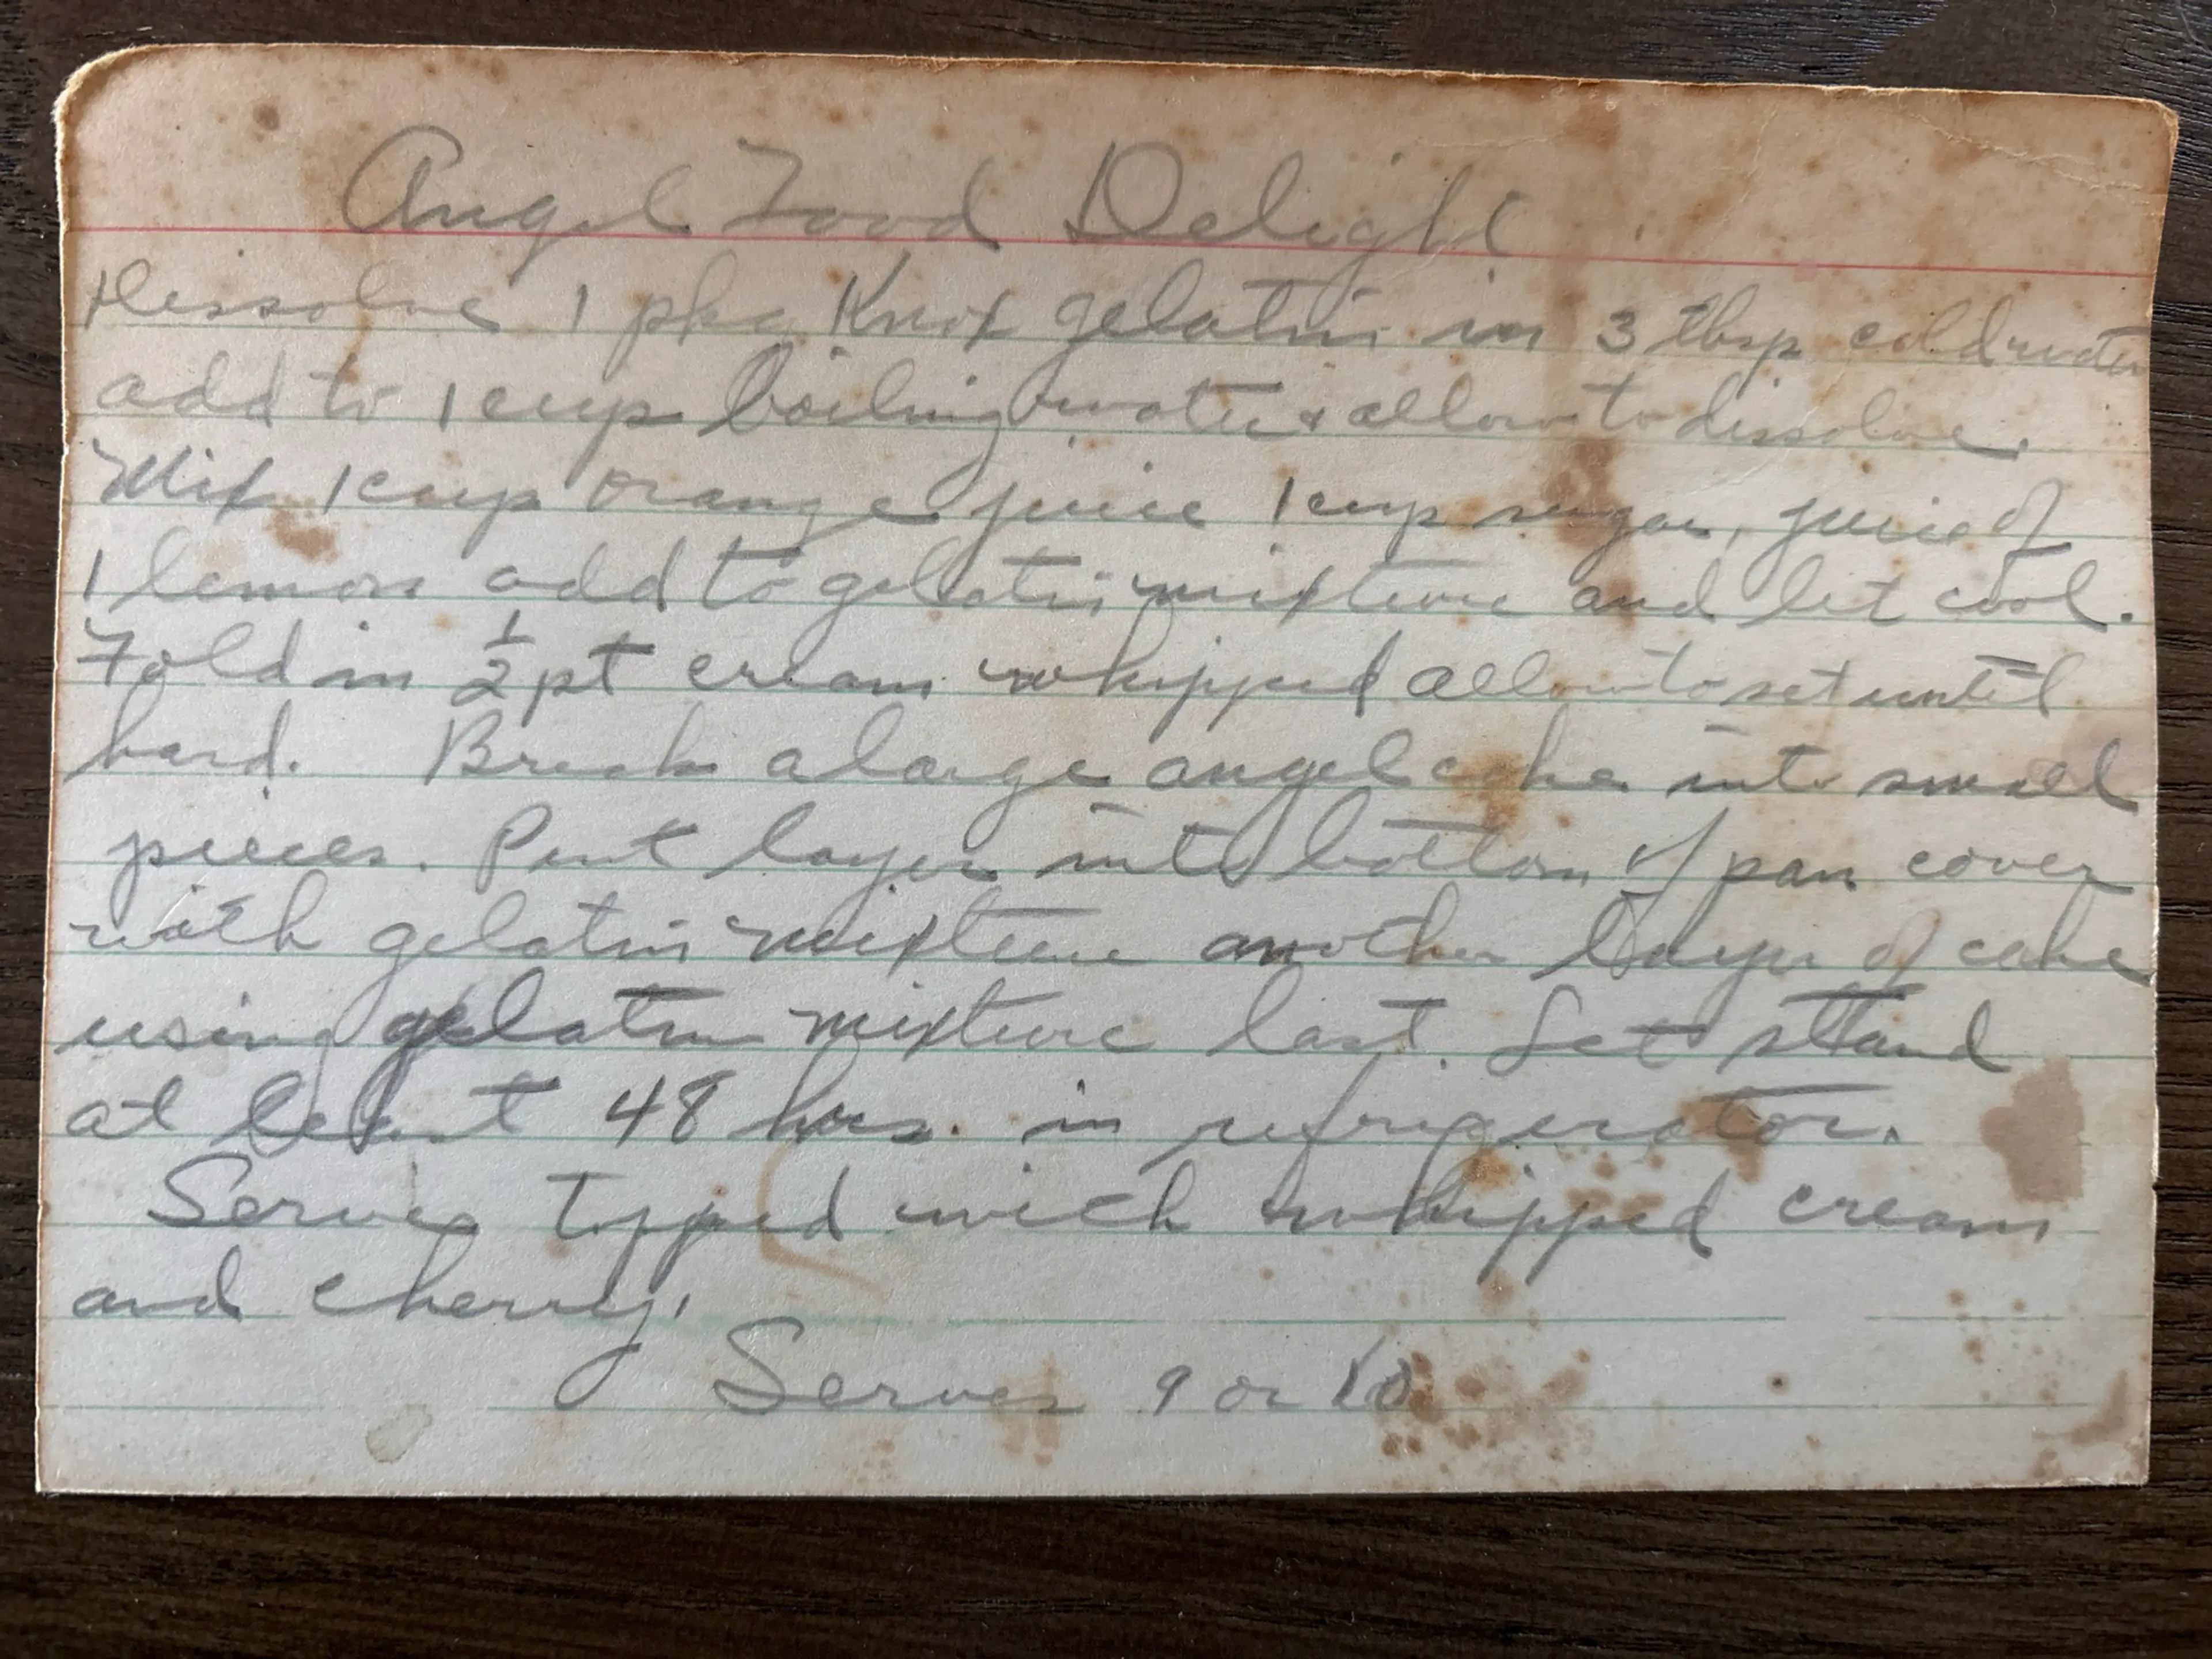 Angel Food Delight
Dissolve 1 pkg Knox gelatin in 3 tbsp cold water
add to 1 cup boiling water & allow to dissolve.
Mix 1 cup orange juice 1 cup sugar, juice of
1 lemon add to gelatin mixture and let cool.
Fold in 1/2 pt cream whipped allow to set until
hard. Break a large angel cake into small
pieces. Put layer into bottom of pan cover
with gelatin mixture another layer of cake
using gelatin mixture last. Let stand
at least 48 hrs. in refrigerator.
Serves topped with whipped cream
and cherry.
Serves 9 or 10